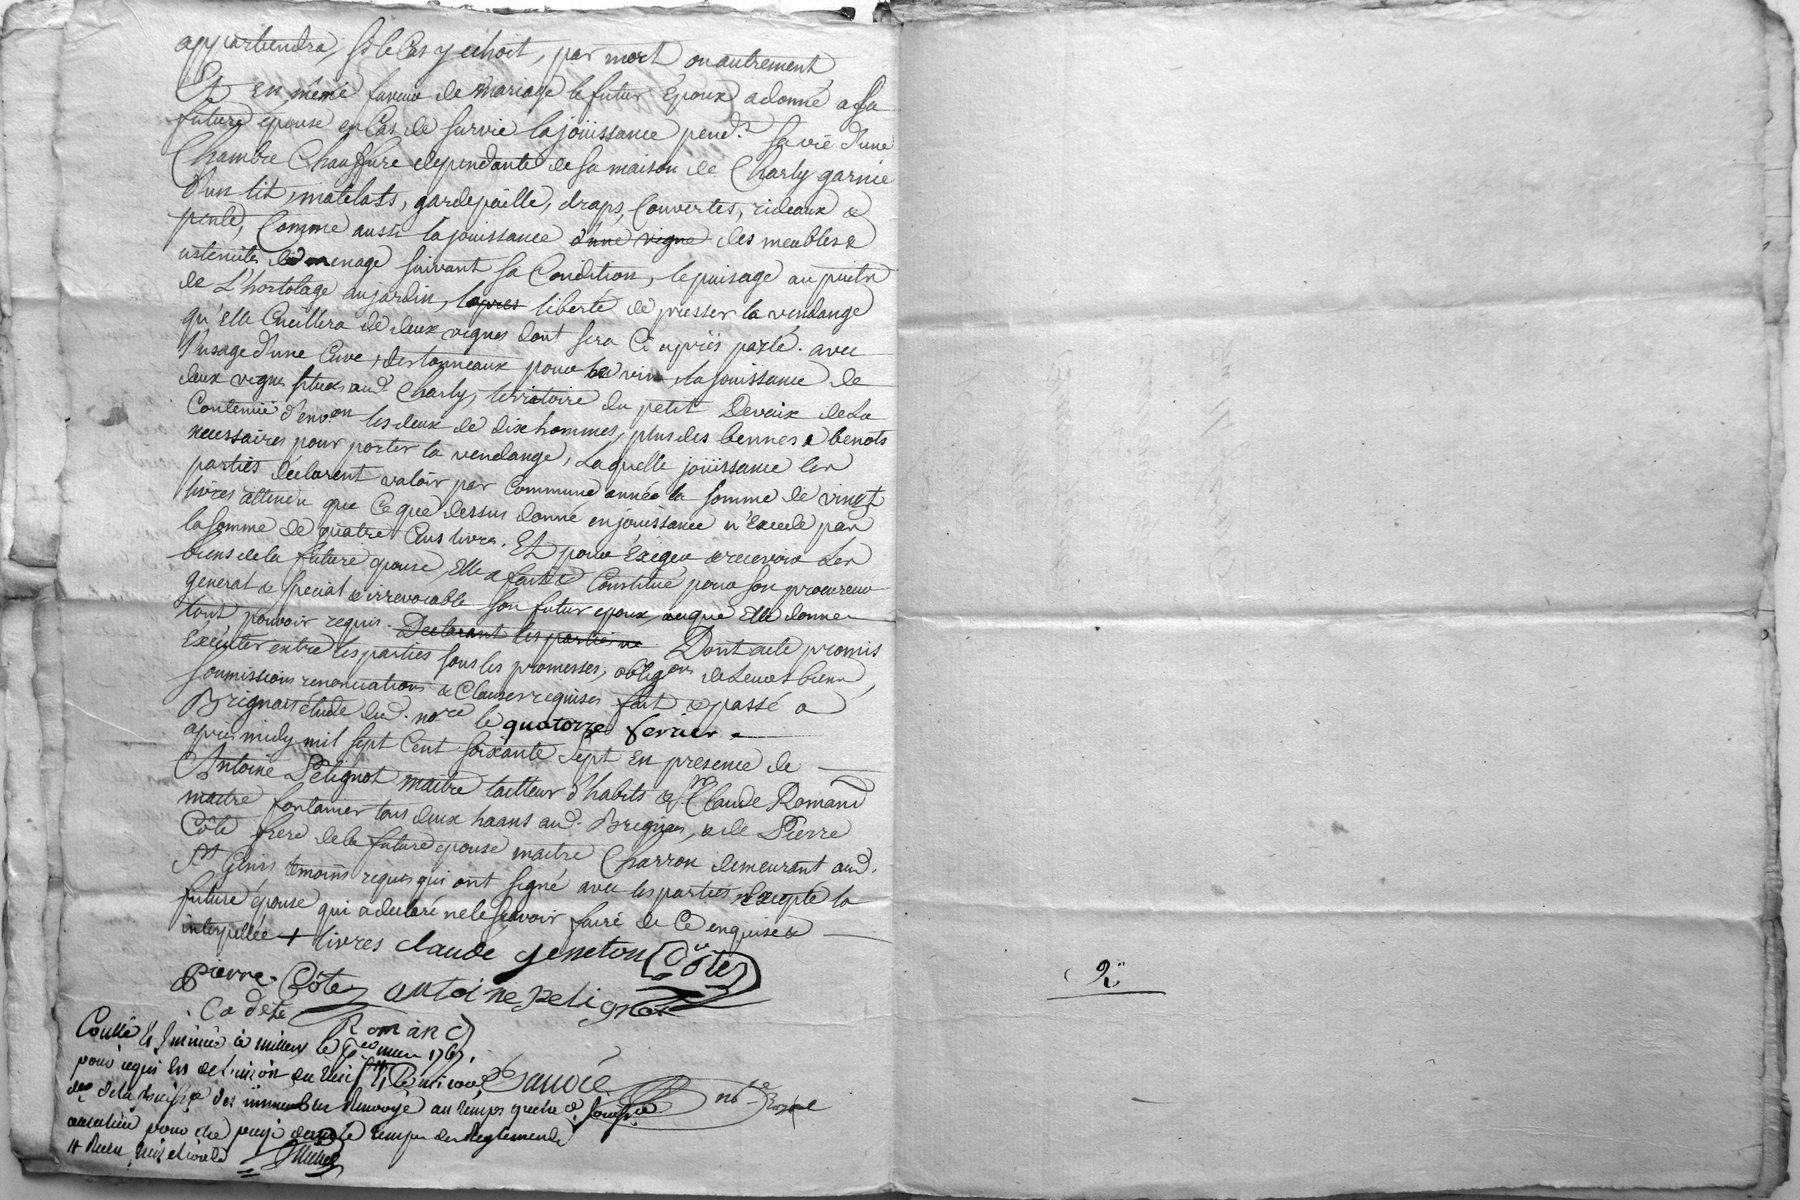 appartiendra, si le Cas y échoit, par mort ou autrement
Et en même faveur de mariage le futur Epoux a donné a sa
future epouse en Cas de survie la joüissance pend.t sa vie d'une
Chambre Chauffure dependante de sa maison de Charly garnie
d'un lit, matelats, gardepaille, draps, Couvertes, rideaux &
pente, Comme aussi la jouissance d'une vigne des meubles &
ustenciles de menage suivant sa Condition, le puisage au puits
de L'hortolage au jardin, lapres liberté de presser la vendange
qu'elle Cueillera de deux vignes dont sera Ci après parlé. avec
l'usage d'une Cuve, des tonneaux pour le vin, la jouissance de
deux vignes situées aud. Charly, territoire du petit Devaix de La
Contenüe d'env.on les deux de dix hommes, plus des bennes & benots
necessaires pour porter la vendange, Laquelle joüissance les
parties déclarent valoir par Commune année la somme de vingt
livres attendu que Ce que dessus donné en jouissance n'Excede pas
la somme de quatre Cens livres. Et pour Exiger & recevoir Les
biens de la future epouse, Elle a fait & Constitué pour son procureur
general & special & irrevocable son futur epoux, auquel Elle donne
tout pouvoir requis. Declarant les parties ne Dont acte promis
Exécuter entre les parties sous les promesses, oblig.ons de Leurs biens,
soumissions renonciations & Clauses requises fait & passé a
Brignais étude dud. no.re le quatorze fevrier.
après midy mil sept Cent soixante sept En presence de
Antoine Pelignot maître tailleur d'habits & s.r Claude Romand
maitre fontanier tous deux haans aud. Brignais, & de Pierre
Côte frere de la future epouse maitre Charron demeurant aud.
S.t Genis temoins requis qui ont signé avec les parties Excepté la
future épouse qui a declaré ne le sçavoir faire de Ce enquise &
interpellée + livres claude geneton Côte
Pierre Côte antoine pelignot
Cadete
Romand
Contlé & Insinué à millery le mars 1767.
pour requis
des immeubles renvoyé au temps
pour être payé dans le temps des Reglements
R.